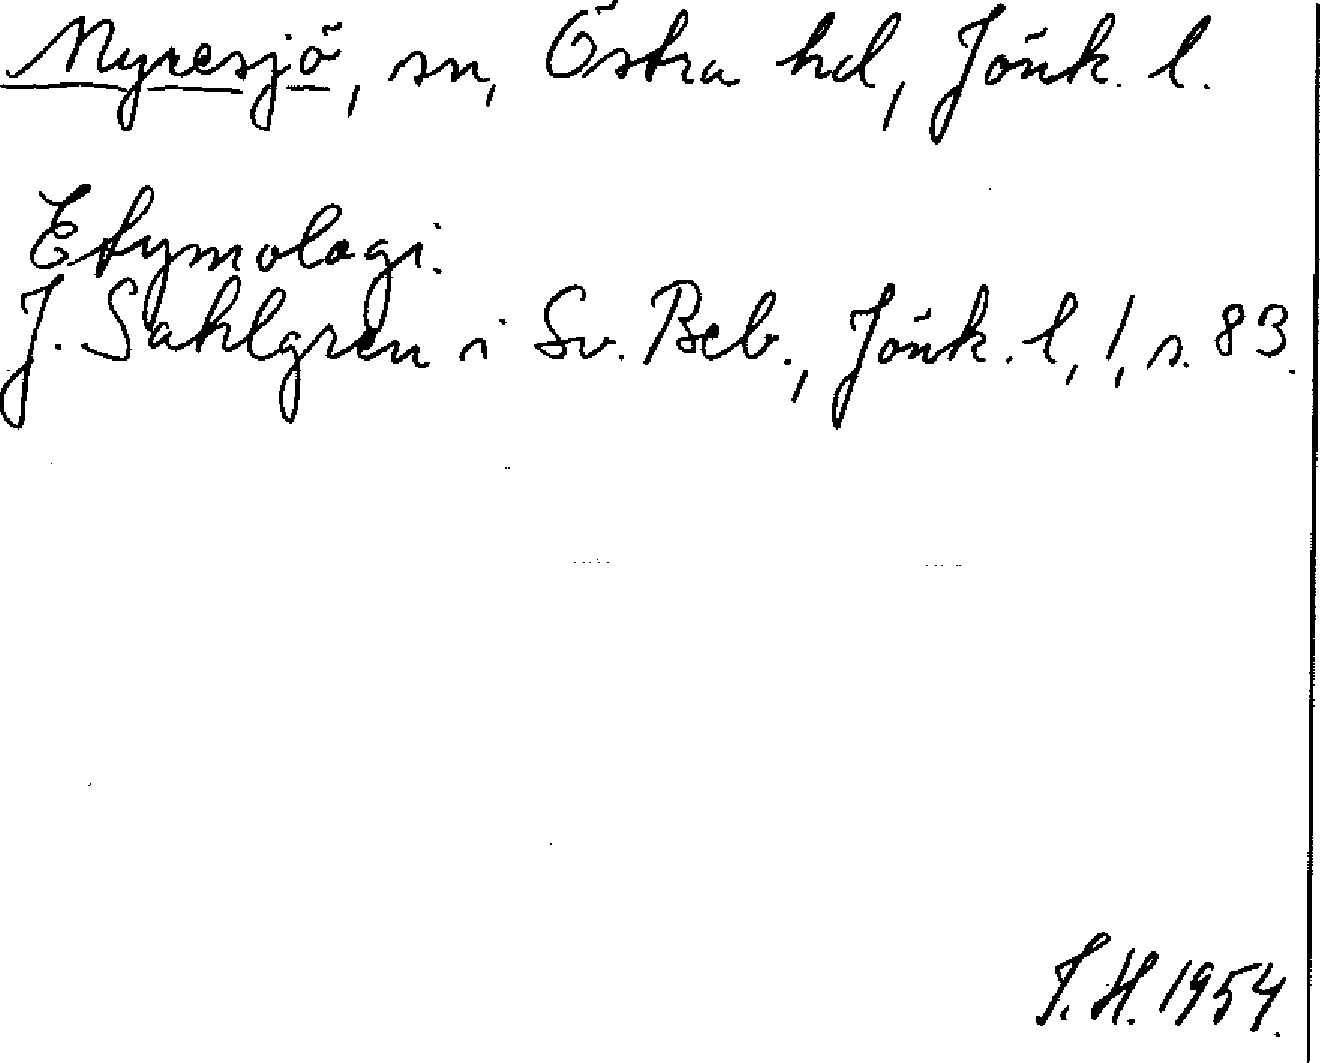 Myresjö, sn, Östra hd, Jönk. l.
Etymologi.
J. Sahlgren i Sv. Beb., Jönk. l, 1, s. 83.
S.H. 1954.